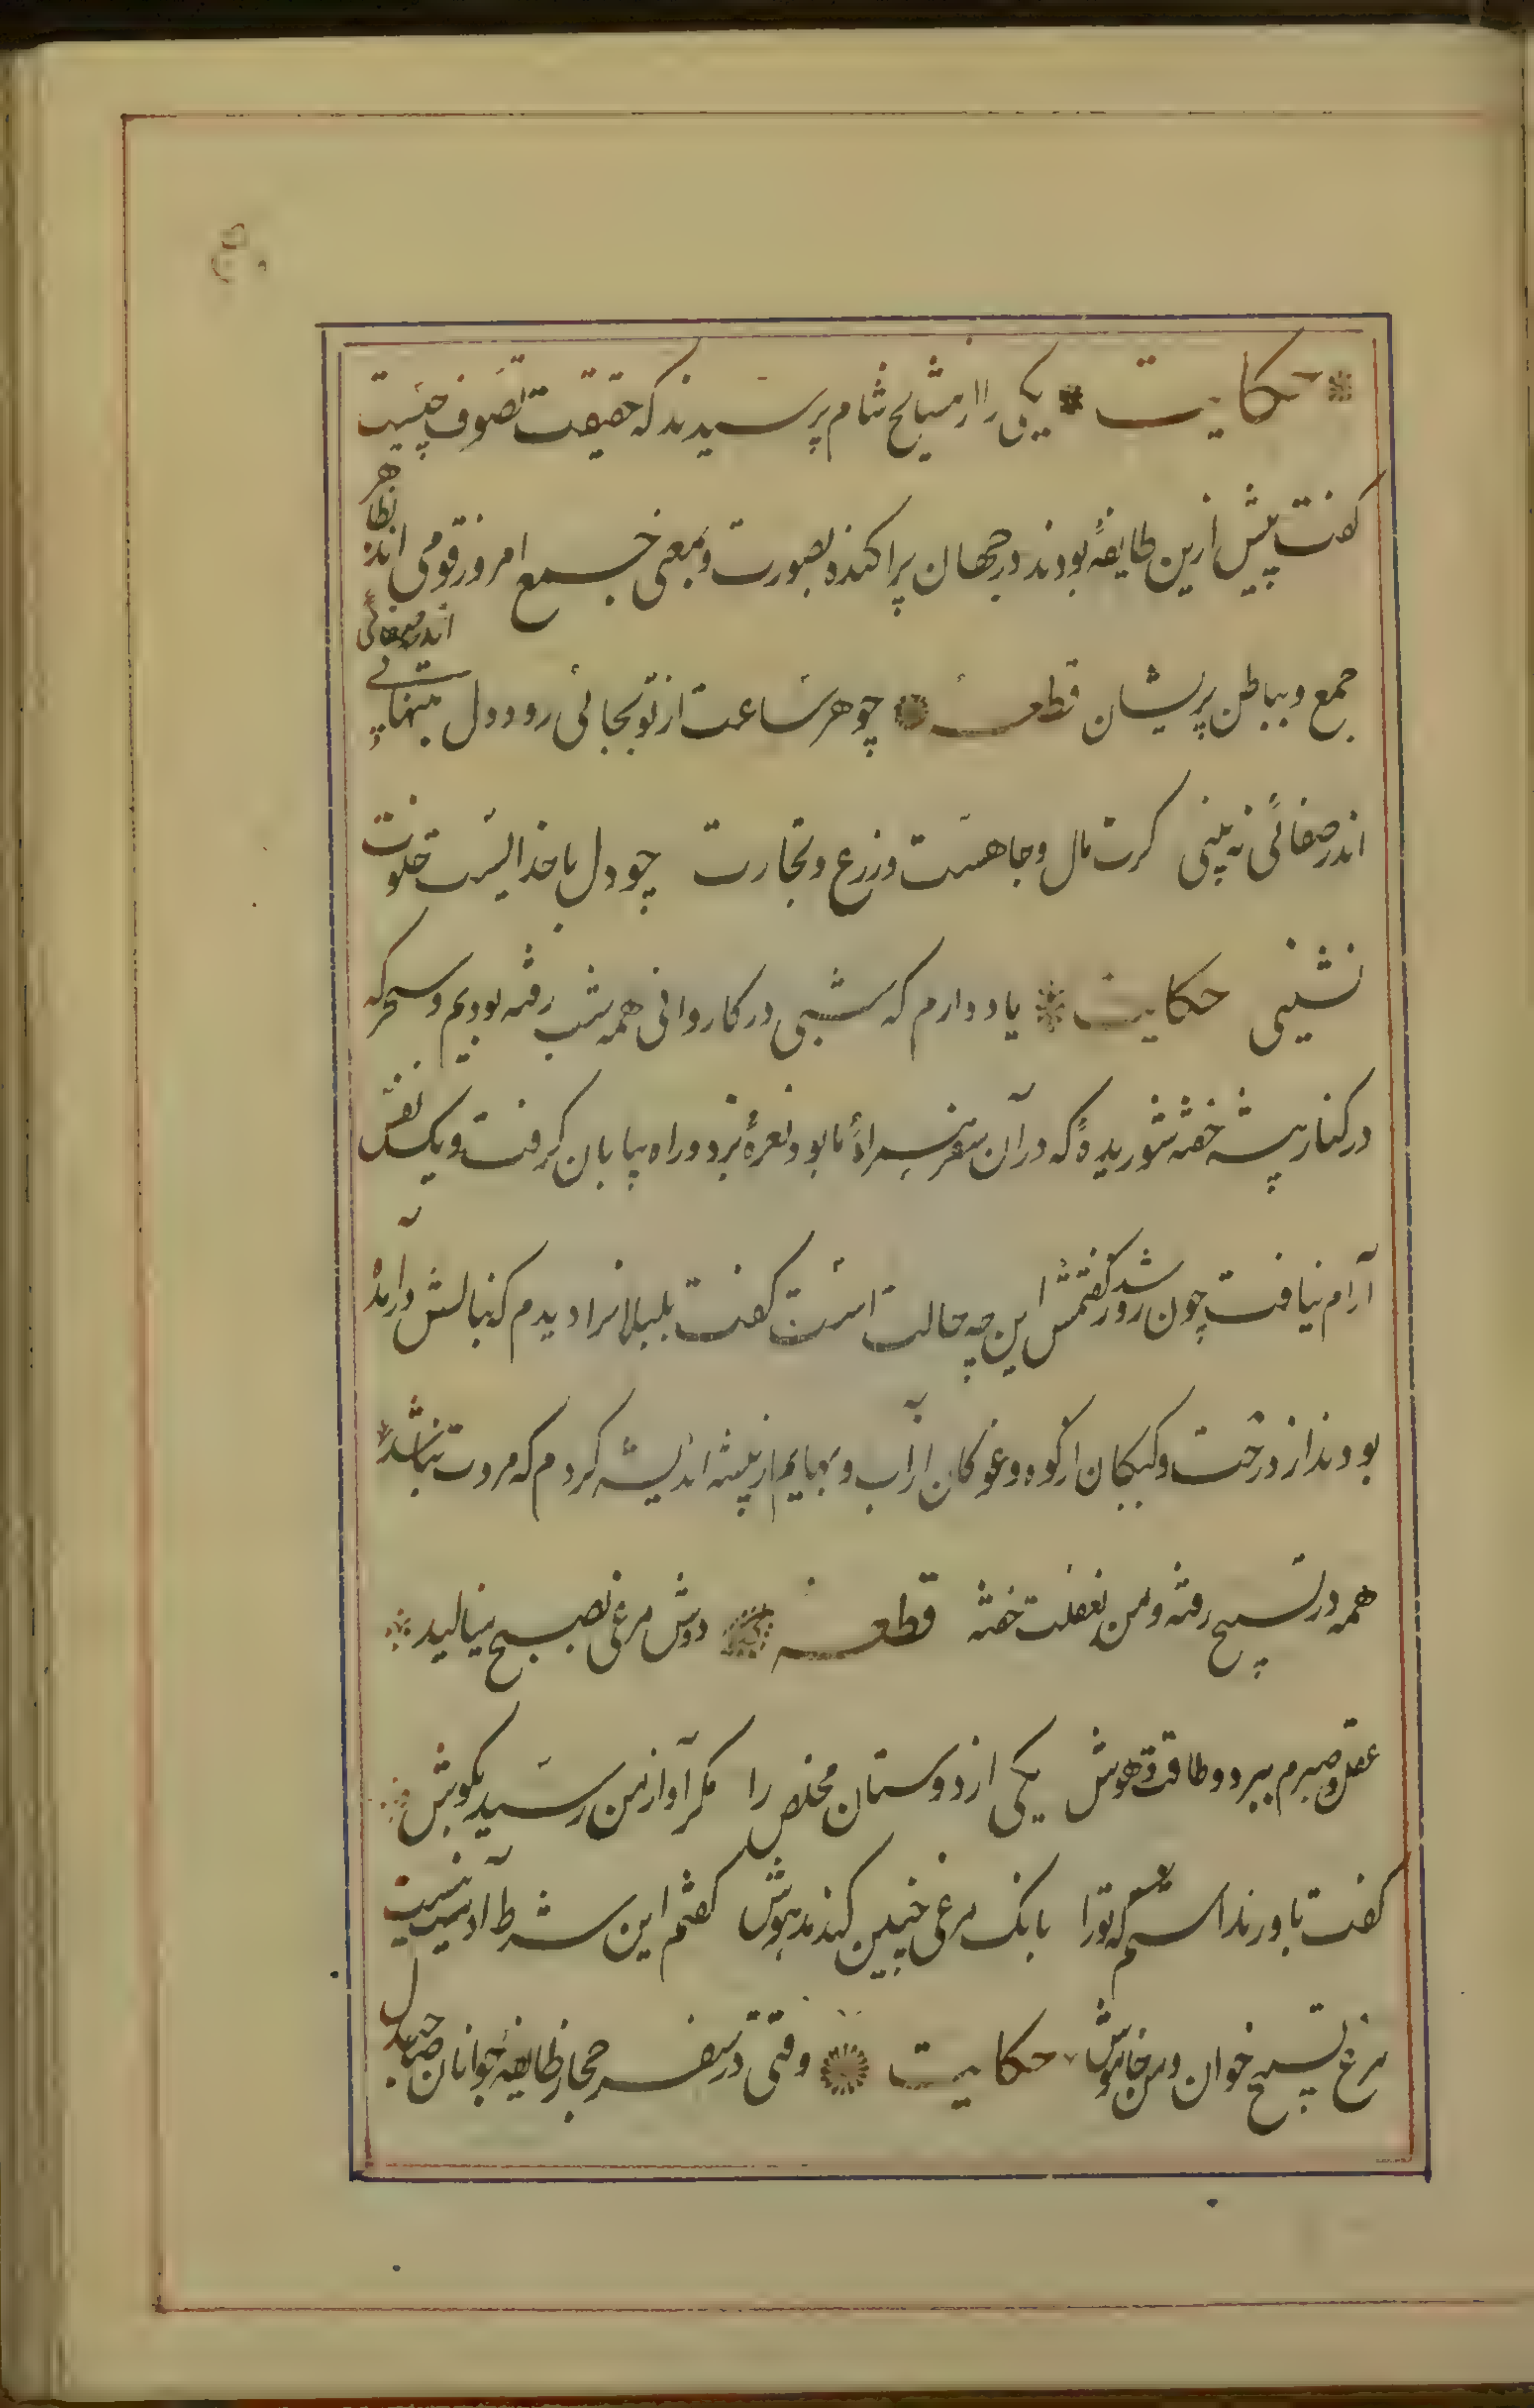 حکایت یکی را از مشایخ شام پرسیدند که حقیقت تصوف چیست
گفت پیش ازین طایفهٔ بودند در جهان پراکنده بصورت و بمعنی جمع امروز قومی اند بظاهر
جمع و بباطن پریشان قطعه چو هر ساعت از تو بجائی رود دل بتنهائی
اندر صفائی
اندر صفائی نه بینی گرت مال و جاهست و زرع و تجارت چو دل با خدایست خلوت
نشینی حکایت یاد دارم که شبی در کاروانی همه شب رفته بودیم و سحر که
در کنار بیشه خفته شوریدهٔ که در آن سفر همراه ما بود نعرهٔ بزد و راه بیابان گرفت و یک نفس
آرام نیافت چون روز شد گفتمش این چه حالت است گفت بلبلانرا دیدم که بنالش در آمده
بودند از درخت و کبکان از کوه و غوکان از آب و بهایم از بیشه اندیشه کردم که مروت نباشد
همه در تسبیح رفته و من بغفلت خفته قطعه دوش مرغی بصبح مینالید
عقل و صبرم ببرد و طاقت و هوش یکی از دوستان مخلص را مگر آواز من رسید بگوش
گفت باور نداشتم که تورا بانک مرغی چنین کند مدهوش گفتم این شرط آدمیت نیست
مرغ تسبیح خوان و من خاموش حکایت وقتی در سفر حجاز طایفهٔ جوانان صاحبدل